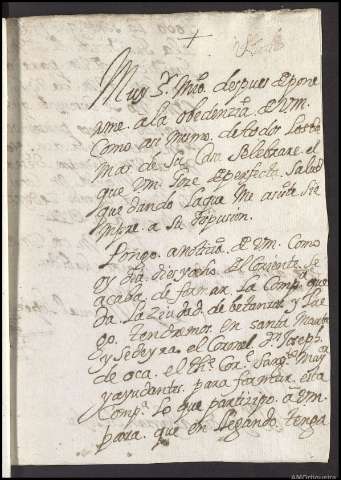 +
Muy S.r Mio. despues de pone
rme. a la obedenzia de Vm.
Como asi mismo. de todos Los de
mas de su Casa Selebrare. el
que Vm Goze de perfecta. Salud
que dando La que Me asiste Sie
mpre a Su dispusizion.
Pongo. a notizia. de Vm. Como
oy dia. diez y ocho. del Coriente Se
acaba de formar. La Comp.a que
da. La Ziudad de betanzos y Lue
go. tendremos. en santa Marta
y sedeyra. el Coronel d.n Joseph.
de oca. el th.e Cor.l Sarg.to May.r
y ayudantes. para formar. esta
Comp.a Lo que partizipo. a Vm.
para. que en llegando tenga
AMOrtigueira